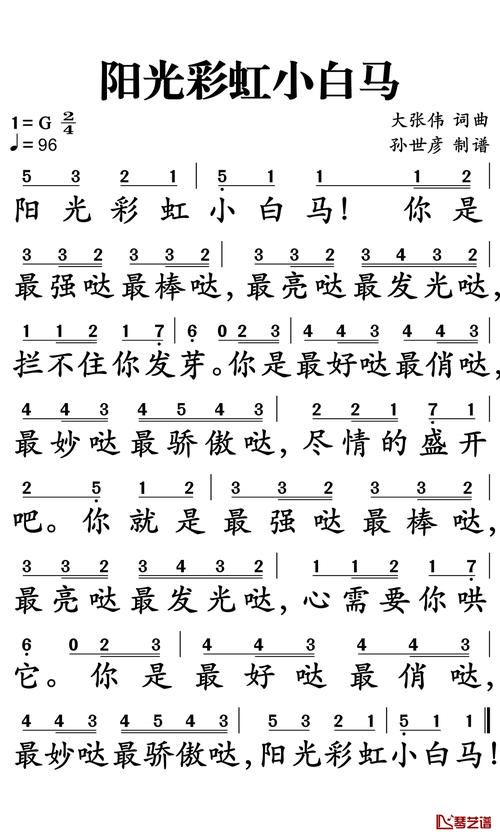 阳光彩虹小白马
1=G 2/4
大张伟 词曲
♩=96
孙世彦 制谱
5 3 2 1 | 5 1 1 | 1 1 2 |
阳光彩虹小白马! 你是
3 3 2 3 3 2 | 3 3 2 3 4 3 2 |
最强哒最棒哒,最亮哒最发光哒,
1 1 2 1 7 | 6 0 2 3 | 4 4 3 4 4 3 |
拦不住你发芽。你是最好哒最俏哒,
4 4 3 4 5 4 3 | 2 2 1 7 1 |
最妙哒最骄傲哒,尽情的盛开
2 5 1 2 | 3 3 2 3 3 2 |
吧。你就是最强哒最棒哒,
3 3 2 3 4 3 2 | 1 1 2 1 7 |
最亮哒最发光哒,心需要你哄
6 0 2 3 | 4 4 3 4 4 3 |
它。你是最好哒最俏哒,
4 4 3 4 5 4 3 | 5 3 2 1 | 5 1 1 ‖
最妙哒最骄傲哒,阳光彩虹小白马!
琴艺谱